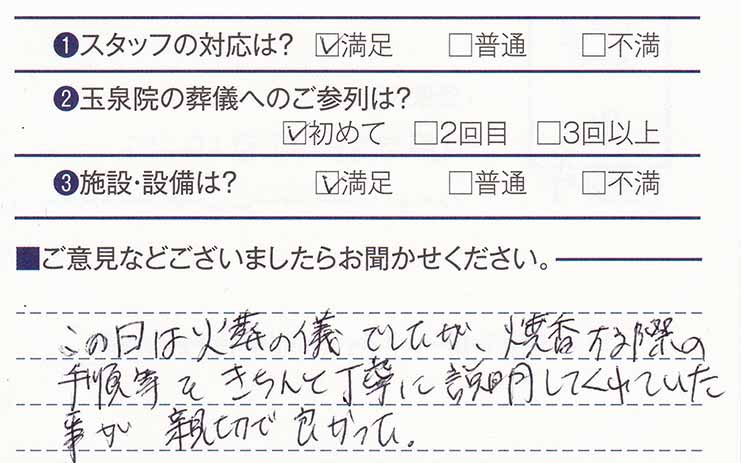 ❶スタッフの対応は? ☑満足 □普通 □不満
❷玉泉院の葬儀へのご参列は?
☑初めて □2回目 □3回以上
❸施設・設備は? ☑満足 □普通 □不満
■ご意見などございましたらお聞かせください。
この日は火葬の儀でしたが、焼香する際の
手順等をきちんと丁寧に説明してくれていた
事が親切で良かった。